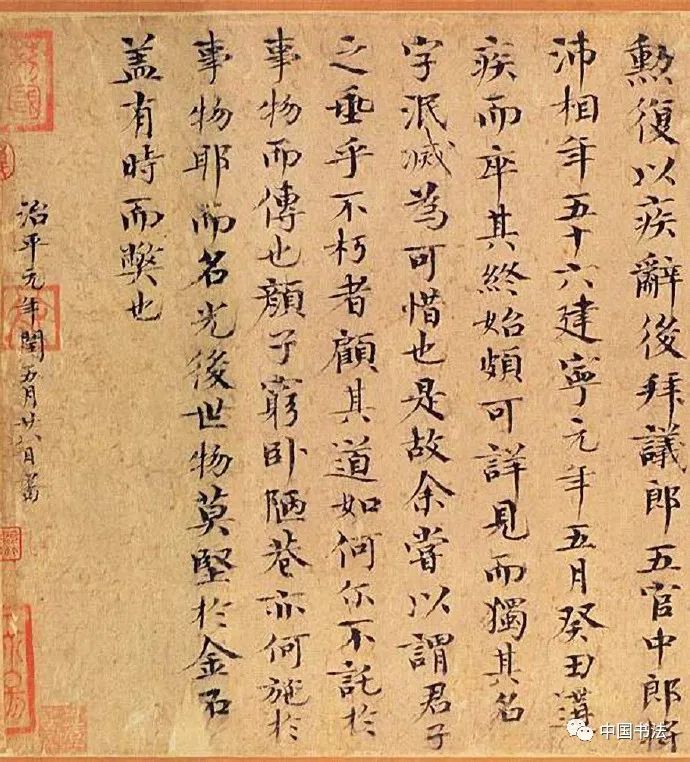 勲復以疾辭後拜議郎五官中郎將
沛相年五十六建寧元年五月癸丑遘
疾而卒其終始頗可詳見而獨其名
字泯滅為可惜也是故余嘗以謂君子
之垂乎不朽者顧其道如何尓不託於
事物而傳也顔子窮卧陋巷亦何施於
事物耶而名光後世物莫堅於金石
盖有時而獘也
治平元年閏五月廿八日書
中国书法